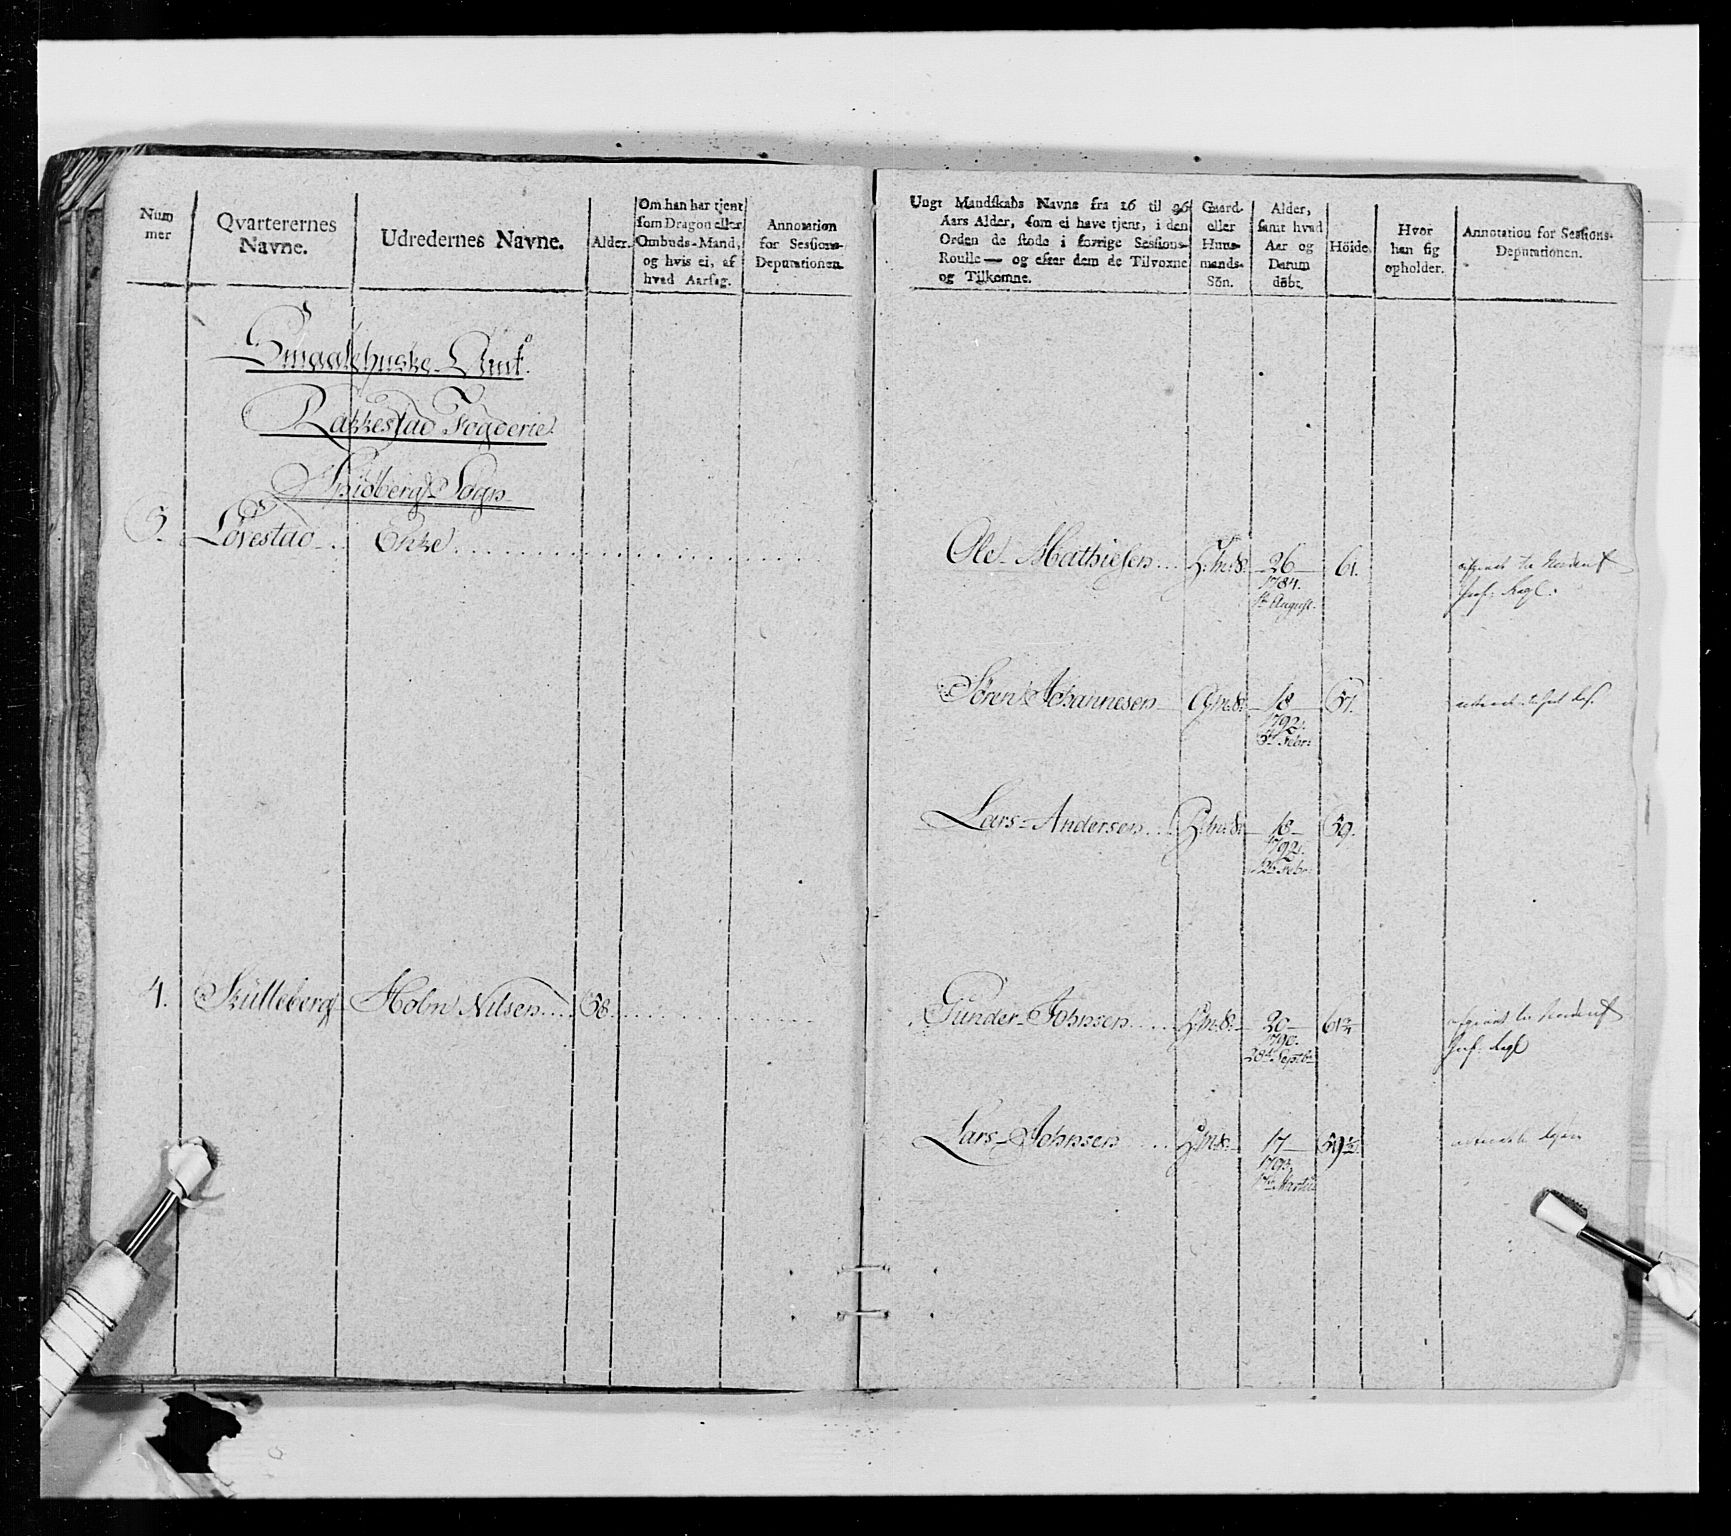 Num
mer
Qvarterernes
Navne.
Udredernes Navne.
Alder.
Om han har tjent
som Dragon eller
Ombuds-Mand,
og hvis ei, af
hvad Aarsag.
Annotation
for Sessions-
Deputationen.
Smaalehnske Amt.
Rakkestad Fogderie.
Spidbergs Sogn
3. Løvestad Enke
4. Skulleberg Holm Nilsen 58.
Ungt Mandskabs Navne fra 16 til 36
Aars Alder, som ei have tjent, i den
Orden de stode i forrige Sessions-
Roulle — og efter dem de Tilvoxne
og Tilkomne.
Gaard-
eller
Huus-
mands-
Sön.
Alder,
samt hvad
Aar og
Datum
döbt.
Höide.
Hvor
han sig
opholder.
Annotation for Sessions-
Deputationen.
Ole Mathiesen H:m:S: 26 61.
1784.
August.
Inf: Regt.
Søren Johannesen G:m:S: 18 57.
1792.
Febr:
Lars Andersen H:m:S: 18 59.
1792.
Febr:
Gunder Johnsen H:m:S: 20 61¾
1790.
28de Septbr
Inf: Regt
Lars Johnsen H:m:S: 17 59½
1793.
Martii